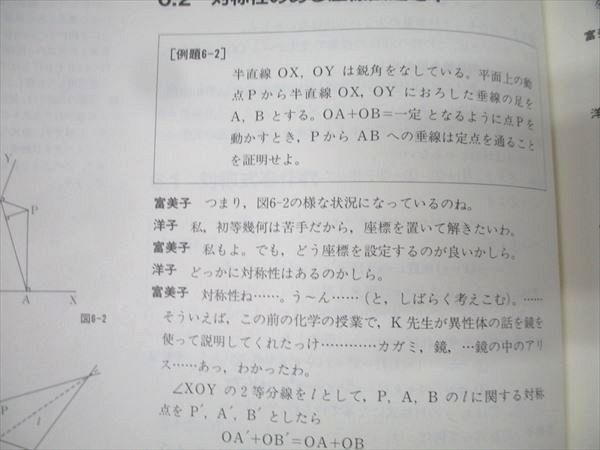 6.2 対称性のある座標
[例題6-2]
半直線 OX, OY は鋭角をなしている。平面上の動
点Pから半直線 OX, OY におろした垂線の足を
A, B とする。OA+OB=一定 となるように点Pを
動かすとき, Pから AB への垂線は定点を通ること
を証明せよ。
富美子 つまり, 図6-2の様な状況になっているのね。
洋子 私, 初等幾何は苦手だから, 座標を置いて解きたいわ。
富美子 私もよ。でも, どう座標を設定するのが良いかしら。
洋子 どっかに対称性はあるのかしら。
富美子 対称性ね……。う〜ん……(と, しばらく考えこむ)。……
そういえば, この前の化学の授業で, K先生が異性体の話を鏡を
使って説明してくれたっけ…………カガミ, 鏡, …鏡の中のアリ
ス……あっ, わかったわ。
∠XOY の2等分線を l として, P, A, B の l に関する対称
点を P′, A′, B′ としたら
OA′+OB′=OA+OB
Y
P
A
X
図6-2
P
l
富美
洋